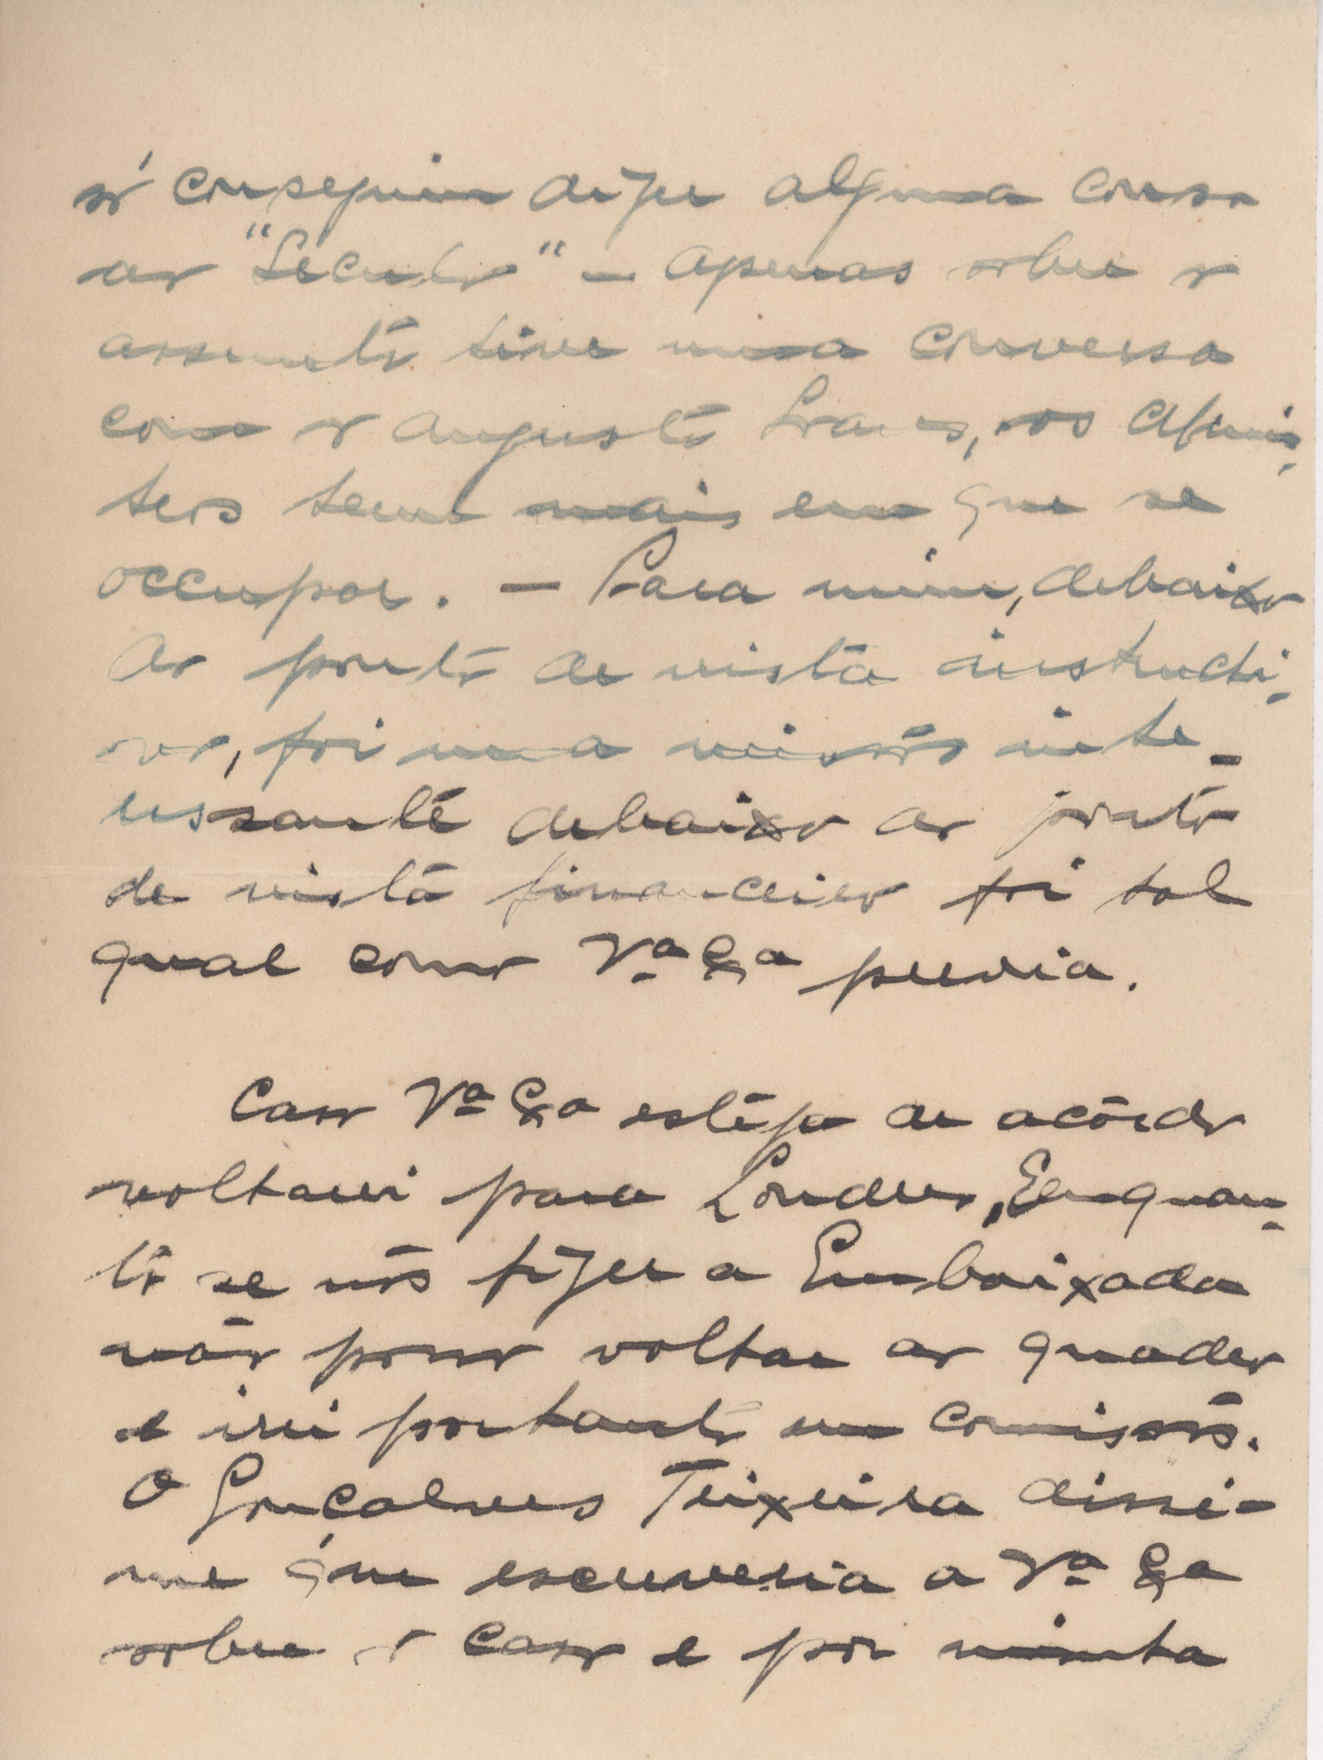 só consegui dizer alguma cousa
ao "Seculo" – Apenas sobre o
assunto tive uma conversa
com o Augusto Soares, os
tros teem mais em que se
occupar. – Para mim, debaixo
do ponto de vista instructi-
vo, foi uma missão inte-
ressante debaixo do ponto
de vista financeiro foi tal
qual como Vª Exª previa.
Caso Vª Exª esteja de acôrdo
voltarei para Londres, Emquan-
to se não fizer a Embaixada
não posso voltar ao quadro
e irei portanto em comissão.
O Gonçalves Teixeira disse-
me que escreveria a Vª Exª
sobre o caso e por minha